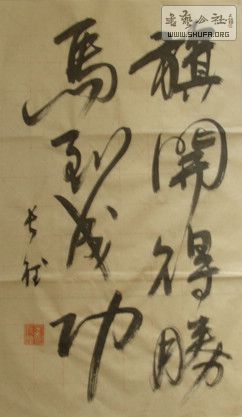 旗開得勝
馬到成功
长征
書藝公社
WWW.SHUFA.ORG